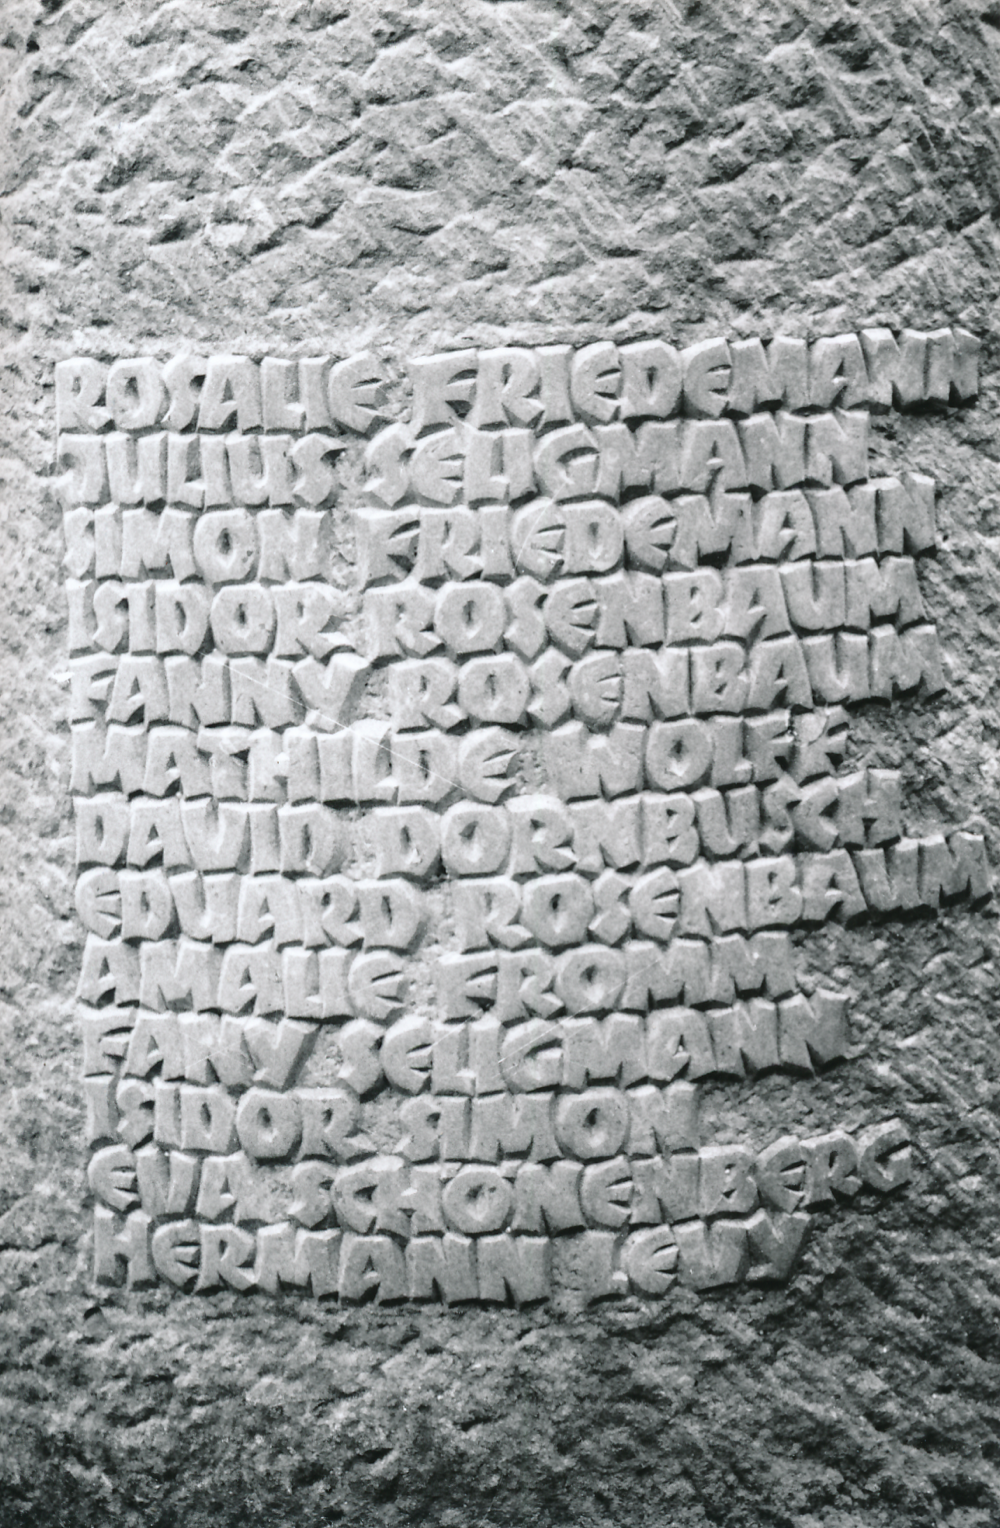 ROSALIE FRIEDEMANN
JULIUS SELIGMANN
SIMON FRIEDEMANN
ISIDOR ROSENBAUM
FANNY ROSENBAUM
MATHILDE WOLFF
DAVID DORNBUSCH
EDUARD ROSENBAUM
AMALIE FROMM
FANY SELIGMANN
ISIDOR SIMON
EVA SCHONENBERG
HERMANN LEVY